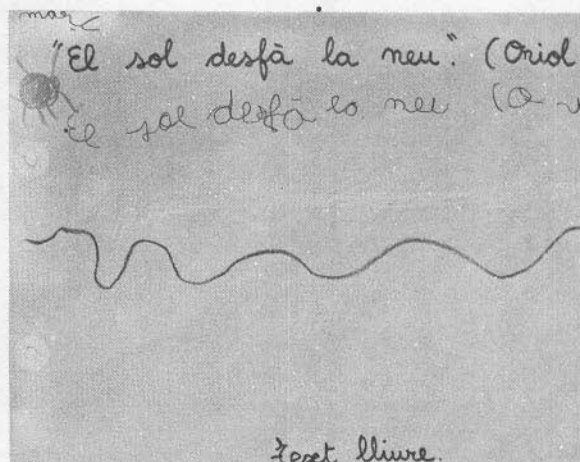 març
"El sol desfà la neu". (Oriol
El sol desfà la neu (O
Text lliure.